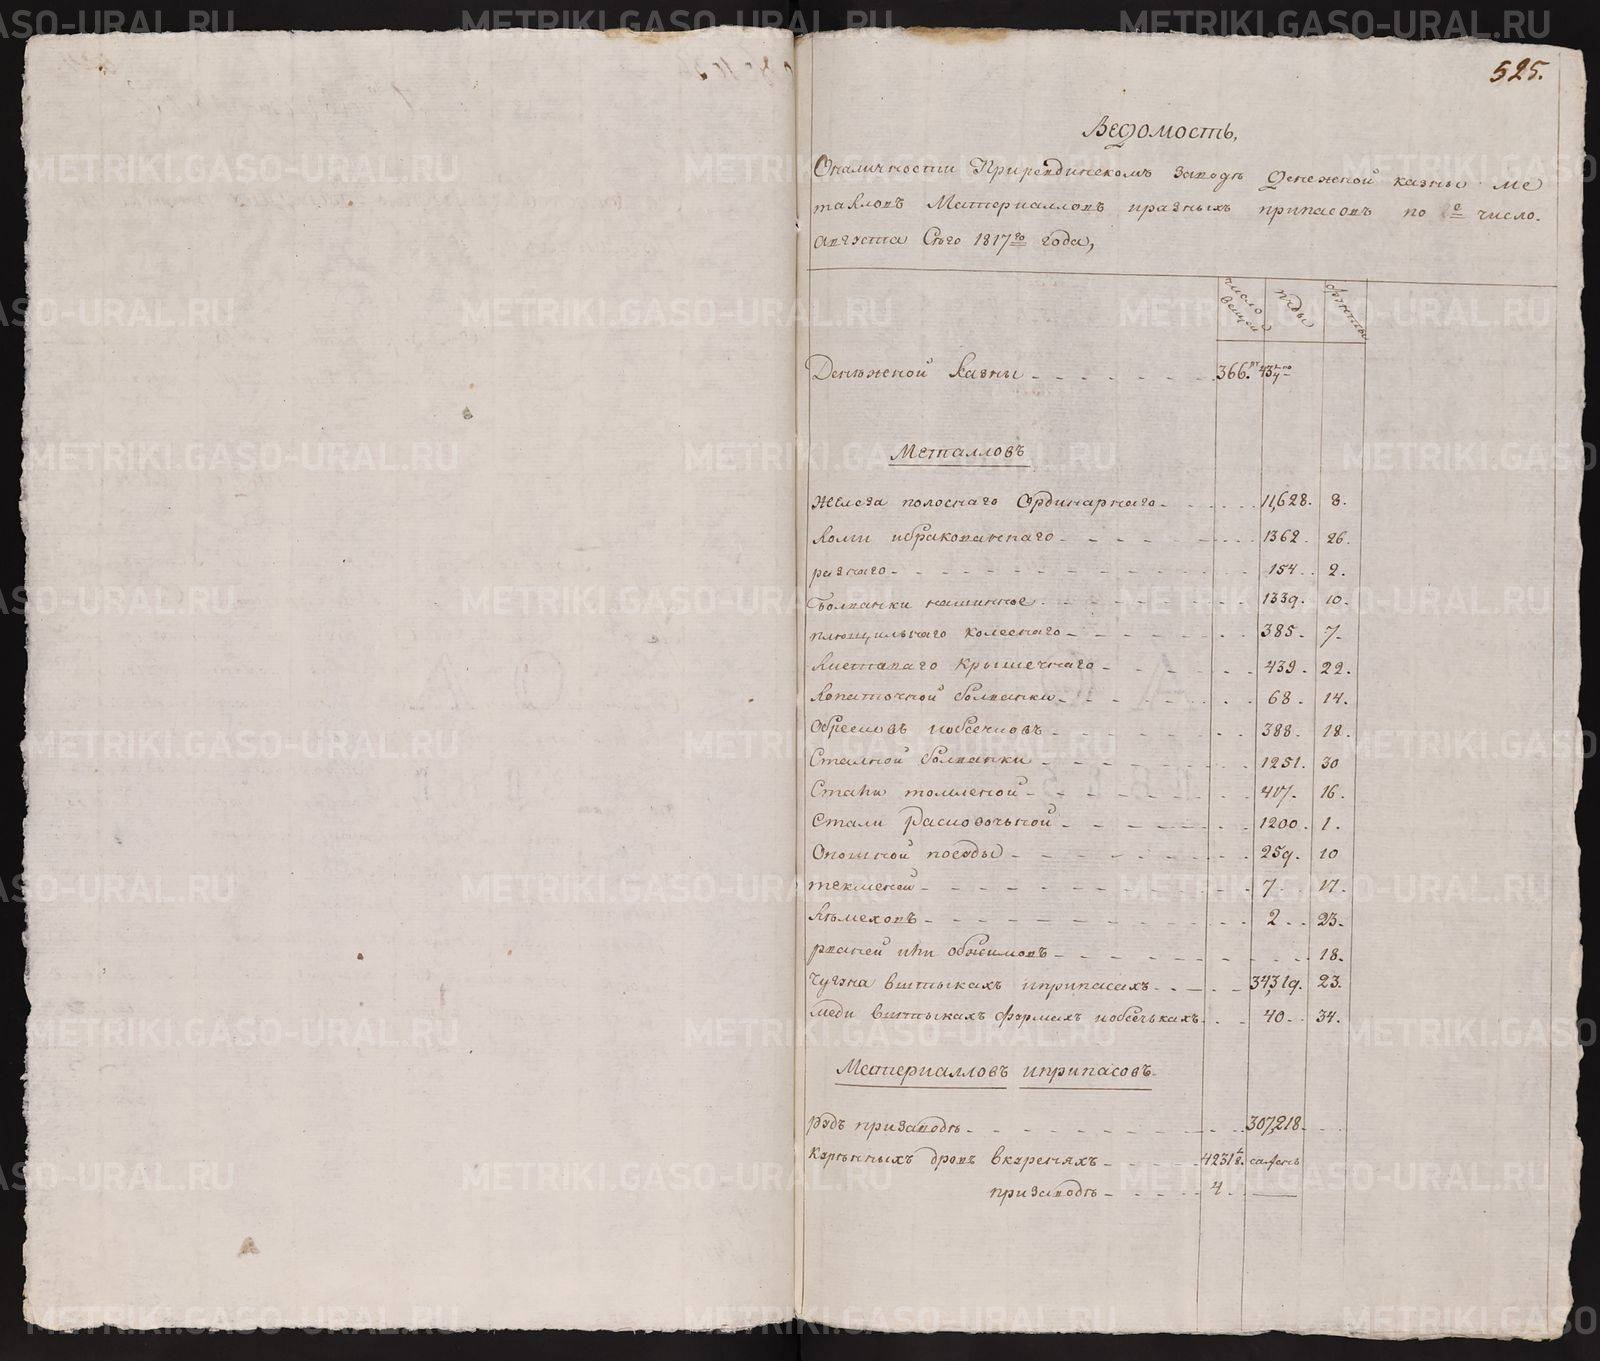 525.
Ведомость,
Оналичности Приревдинскомъ заводѣ денежной казны ме
талловъ Материалловъ иразныхъ припасовъ по е число.
августа Сего 1817го года,
число вещей пуды фунты
Денѣжной Казны 366.
Металловъ
железа полоснаго Ординарнаго 11,628. 8.
Ломи ибракованнаго 1362. 26.
разнаго 154. 2.
болванки машинное 1339. 10.
плющильнаго колеснаго 385. 7.
Листаваго крышечнаго 439. 22.
Лопаточной болванки 68. 14.
Обресковъ иобсечковъ 388. 18.
Стальной болванки 1251. 30
Стали томленой 417. 16.
Стали Расковочьной 1200. 1.
посуды 259. 10
7. 17.
2. 23.
или Обжимовъ 18.
Чугуна вштыкахъ иприпасахъ 34,319. 23.
меди вштыкахъ фурмахъ иобсечькахъ 40. 34.
Материалловъ иприпасовъ
рудъ призаводѣ 307,218.
дровъ вкуреняхъ 4231 1/2. саженъ
призаводѣ 4.
METRIKI.GASO-URAL.RU